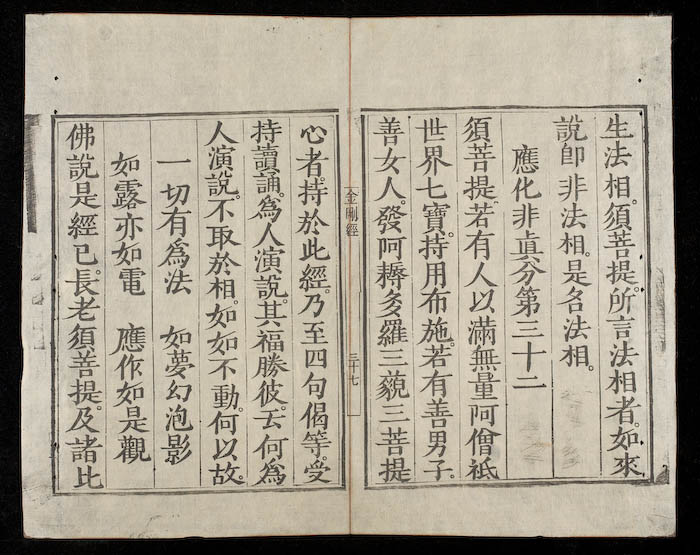 生法相。須菩提。所言法相者。如來
說卽非法相。是名法相。
應化非眞分第三十二
須菩提。若有人以滿無量阿僧祇
世界七寶。持用布施。若有善男子。
善女人。發阿耨多羅三藐三菩提
金剛經
三十七
心者。持於此經。乃至四句偈等。受
持讀誦。爲人演說。其福勝彼。云何爲
人演說。不取於相。如如不動。何以故。
一切有爲法 如夢幻泡影
如露亦如電 應作如是觀
佛說是經已。長老須菩提。及諸比